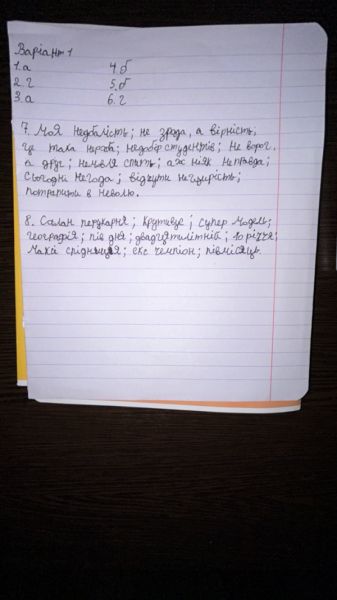 Варіант 1
1. а 4. б
2. г 5. б
3. а 6. г
7. Моя недбалість; не зрада, а вірність;
це така нероба; недобір студентів; не ворог,
а друг; немовля спить; аж ніяк неправда;
Сьогодні негода; відчути нещирість;
потрапити в неволю.
8. Салон перукарня; Крутиус; супер модель;
географія; пів дня; двадцятилітній; 10 річчя;
Максі спідниця; екс чемпіон; півмісяць.